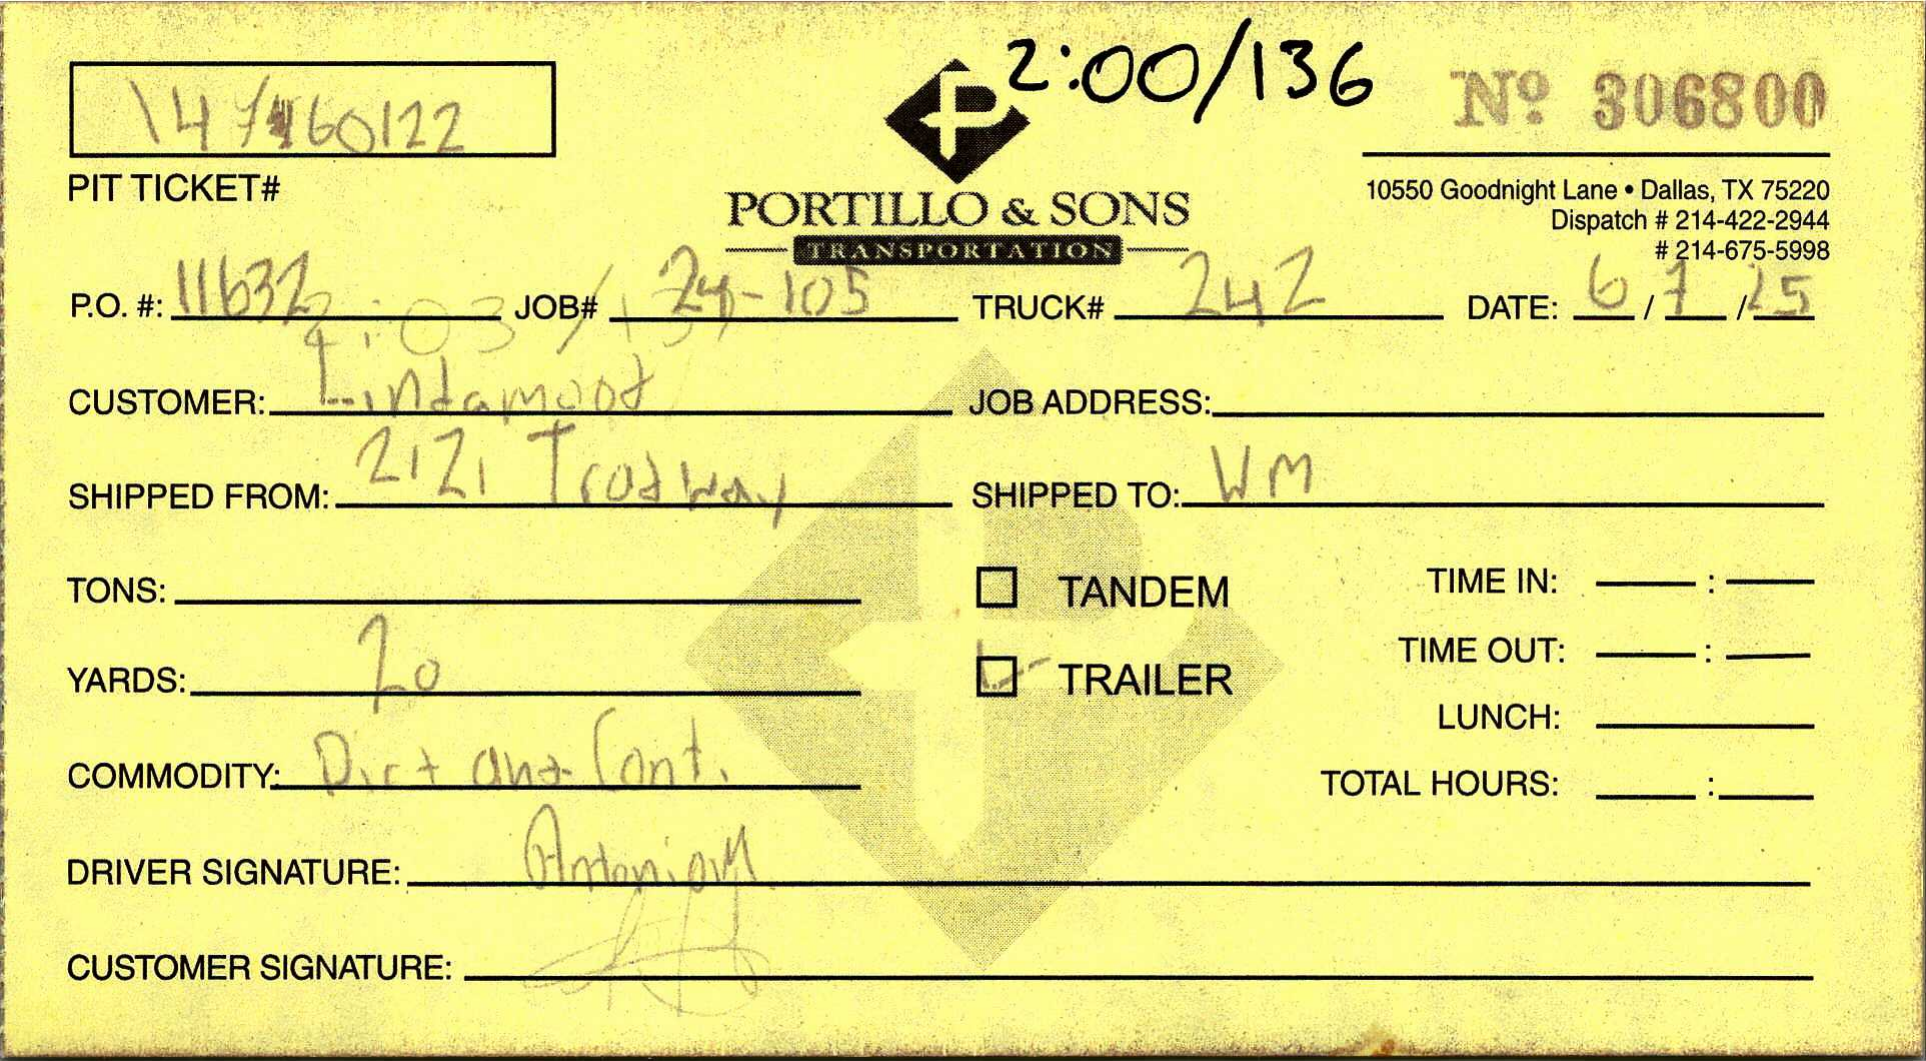 2:00/136
147460122
Nº 306800
PIT TICKET#
PORTILLO & SONS
TRANSPORTATION
10550 Goodnight Lane • Dallas, TX 75220
Dispatch # 214-422-2944
# 214-675-5998
P.O. #: 11632 JOB# 24-105 TRUCK# 242 DATE: 6/7/25
CUSTOMER: Lindamood JOB ADDRESS:
SHIPPED FROM: 2121 Trodway SHIPPED TO: WM
TONS: TANDEM TIME IN: :
YARDS: 20 TRAILER TIME OUT: :
LUNCH:
COMMODITY: Dirt and Cont. TOTAL HOURS: :
DRIVER SIGNATURE: Antonio M.
CUSTOMER SIGNATURE: